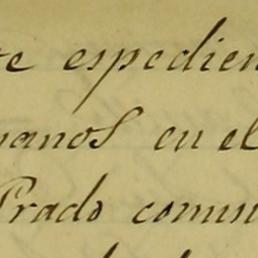 te espedien
anos en el
Prado comun